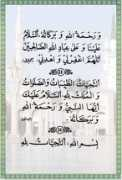 وَ رَحْمَةُ اللهِ وَ بَرَكَاتُهُ، اَلسَّلَامُ
عَلَيْنَا وَ عَلَى عِبَادِ اللهِ الصَّالِحِينَ
اَللّٰهُمَّ اغْفِرْ لِي وَ اهْدِنِي
اَلتَّحِيَّاتُ الطَّيِّبَاتُ وَ الصَّلَوَاتُ
وَ الْمُلْكُ لِلهِ اَلسَّلَامُ عَلَيْكَ
أَيُّهَا النَّبِيُّ وَ رَحْمَةُ اللهِ
وَ بَرَكَاتُهُ
بِسْمِ اللهِ، اَلتَّحِيَّاتُ لِلهِ